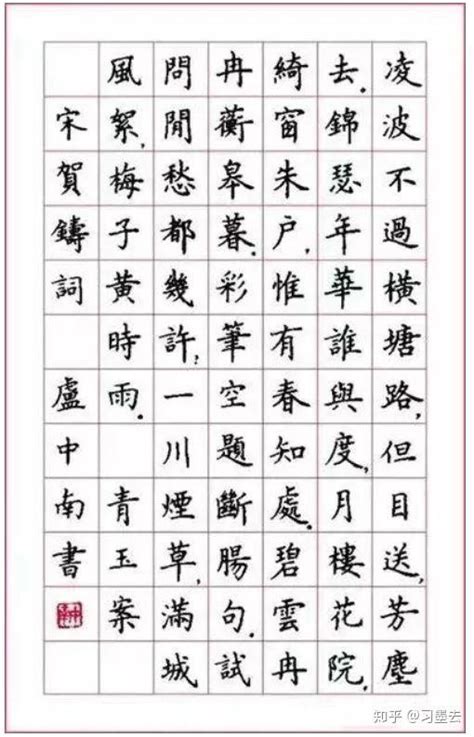 凌波不過橫塘路,但目送,芳塵
去.錦瑟年華誰與度,月樓花院,
綺窗朱户,惟有春知處.碧雲冉
冉蘅皋暮.彩筆空題斷腸句.試
問閒愁都幾許?一川煙草,滿城
風絮,梅子黃時雨. 青玉案
宋賀鑄詞 盧中南書
知乎 @习墨去